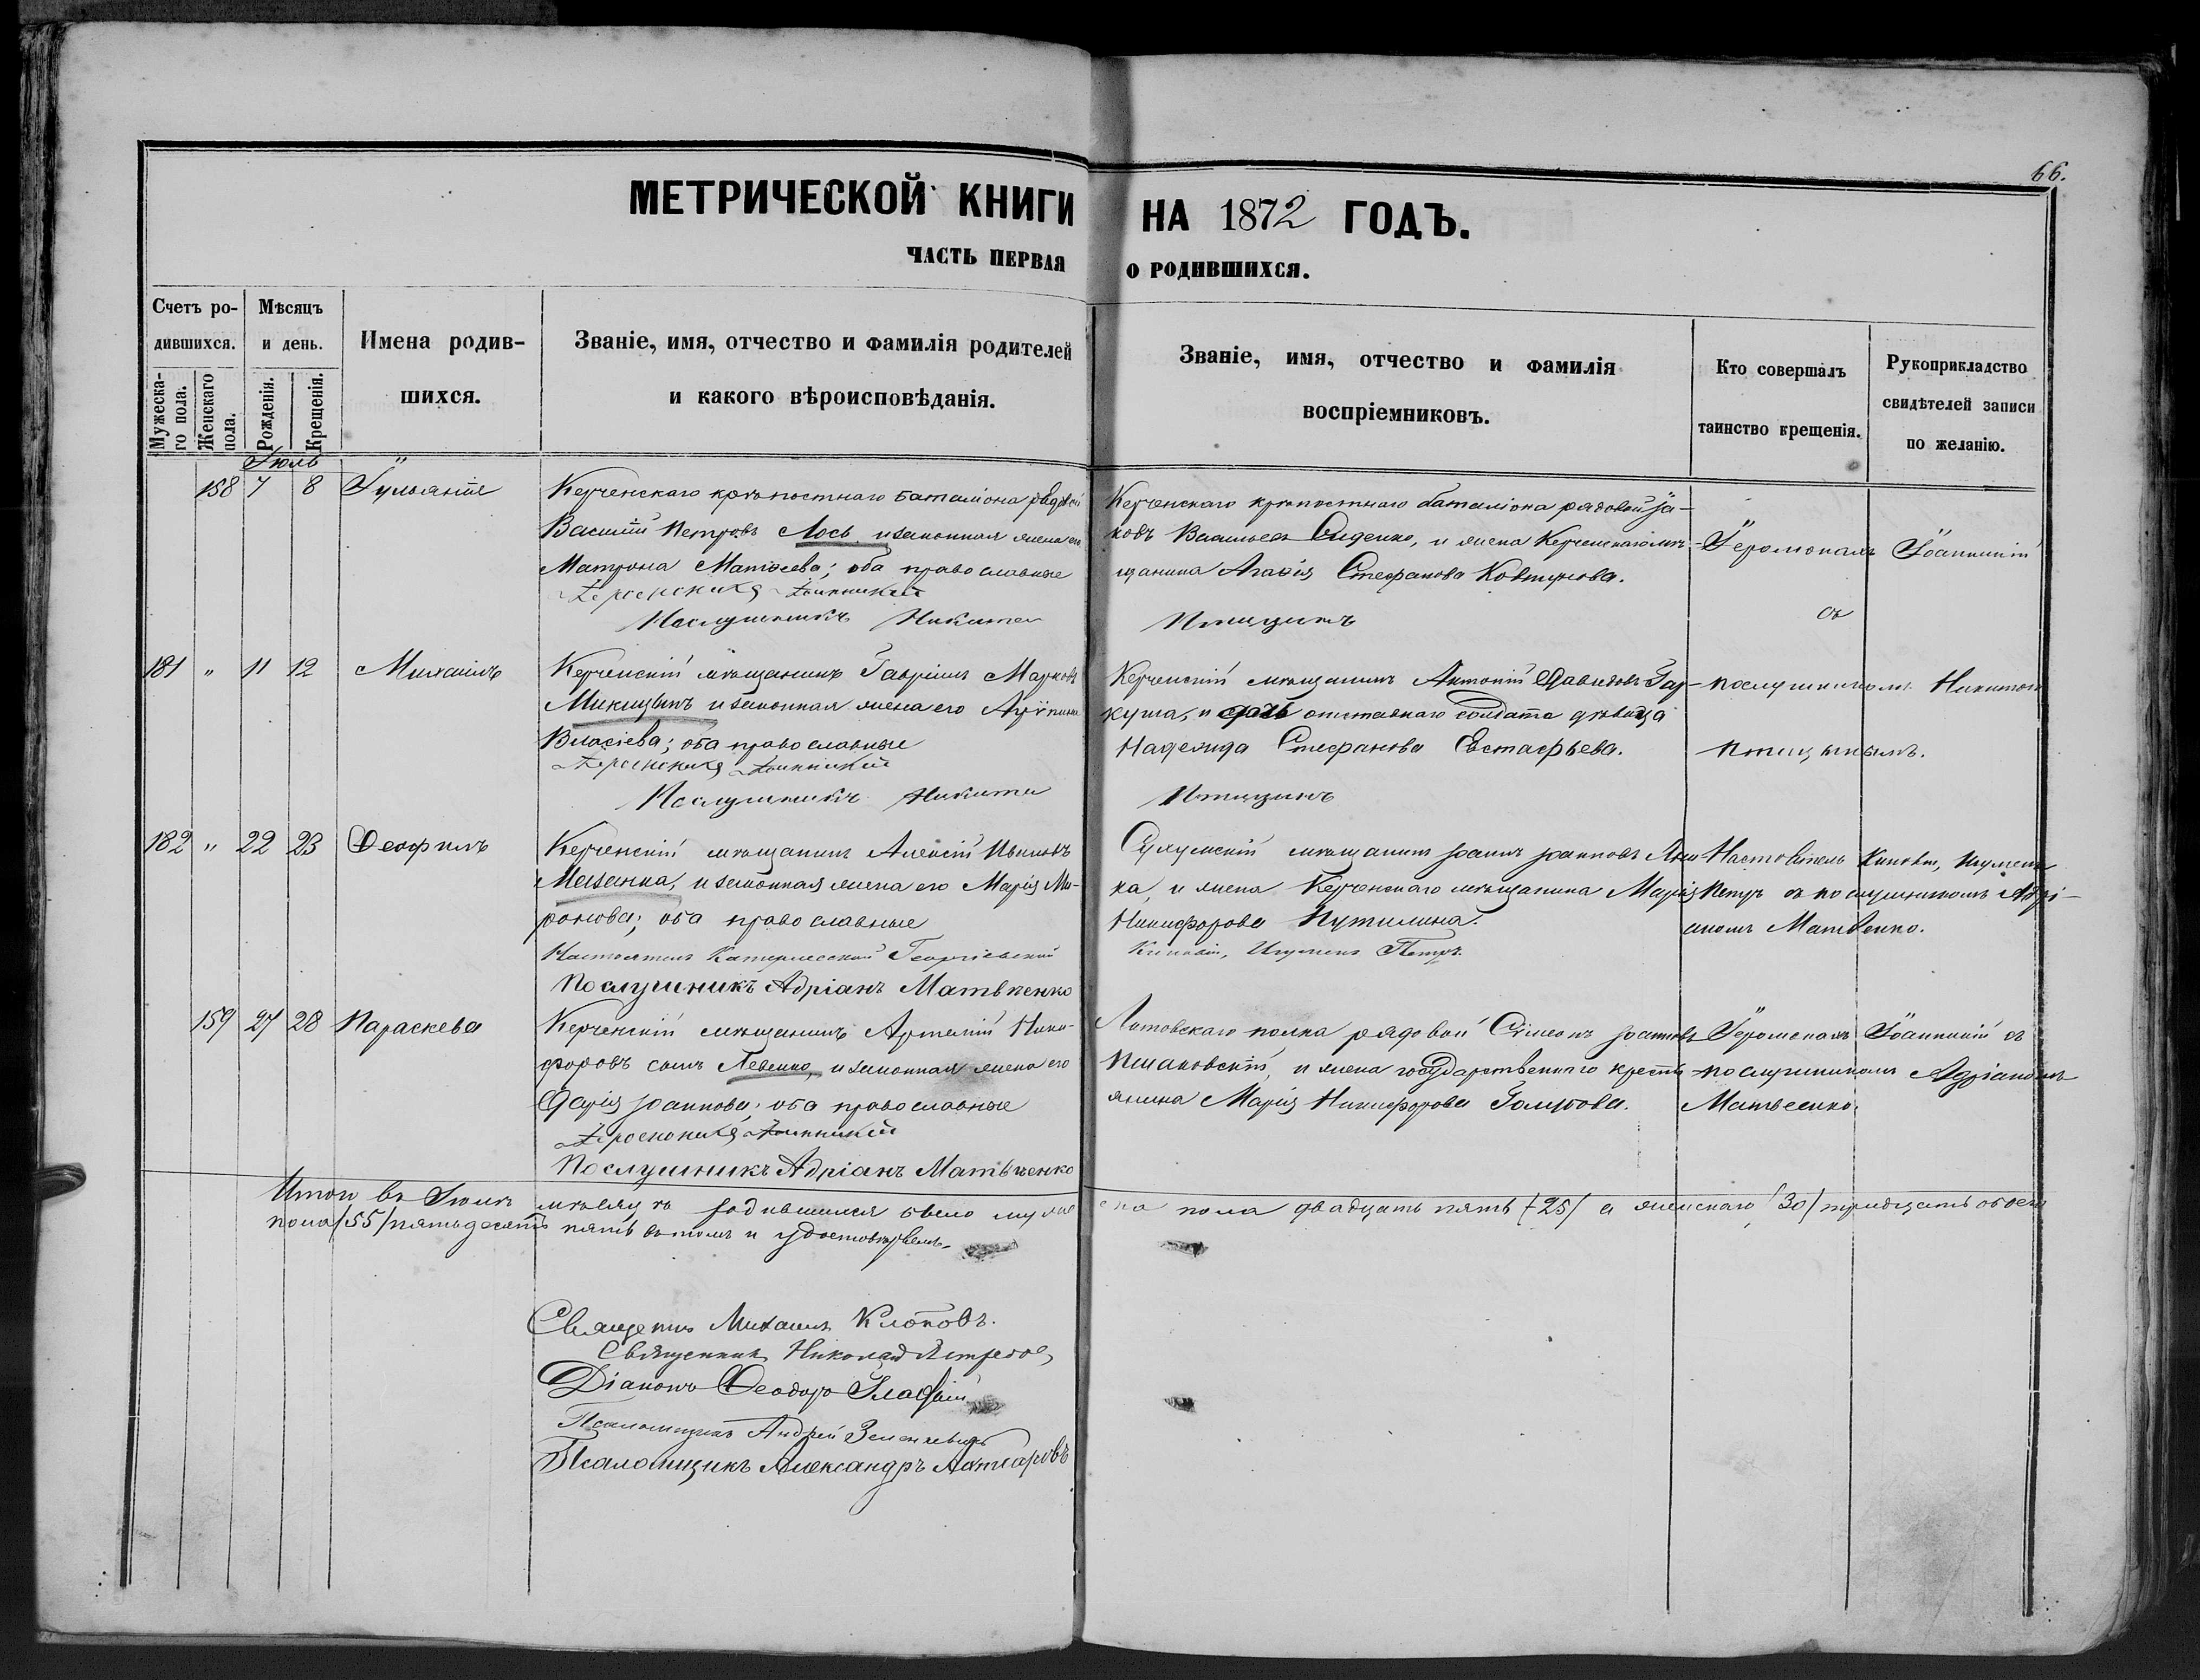 66.
МЕТРИЧЕСКОЙ КНИГИ НА 1872 ГОДЪ.
ЧАСТЬ ПЕРВАЯ О РОДИВШИХСЯ.
Счетъ ро-
дившихся.
Мужеска-
го пола.
Женскаго
пола.
Мѣсяцъ
и день.
Рожденія.
Крещенія.
Имена родив-
шихся.
Званіе, имя, отчество и фамилія родителей
и какого вѣроисповѣданія.
Званіе, имя, отчество и фамилія
воспріемниковъ.
Кто совершалъ
таинство крещенія.
Рукоприкладство
свидѣтелей записи
по желанію.
Іюль
158 7 8 Іуліанія
Керченскаго крѣпостнаго баталіона рядовой
Василій Петровъ Лось, и законная жена его
Матрона Матѳеева; оба православные
Іеромонахъ Іоанникій
Послушникъ Никита Птицинъ
Керченскаго крѣпостнаго баталіона рядовой Іа-
ковъ Васильевъ Сиденко, и жена Керченскаго мѣ-
щанина Агаѳія Стефанова Ковтунова.
Іеромонахъ Іоанникій
съ
181 " 11 12 Михаилъ
Керченскій мѣщанинъ Гавріилъ Марковъ
Микицынъ и законная жена его
Власіева; оба православные
Іеромонахъ Іоанникій
Послушникъ Никита Птицинъ
Керченскій мѣщанинъ Антоній Давидовъ Гар-
куша, и дочь отставнаго солдата дѣвица
Надежда Стефанова Евстафьева.
послушникомъ Никитою
Птицынымъ.
182 " 22 23 Ѳеофилъ
Керченскій мѣщанинъ Алексій
Мазанка, и законная жена его Марія Ми-
ронова; оба православные
Настоятель Катерлесской Георгіевской Киновіи, Игуменъ Петръ
Послушникъ Адріанъ Матвѣенко
Сухумскій мѣщанинъ Іоаннъ Іоанновъ
ка, и жена Керченскаго мѣщанина Марія
Никифорова Путилина.
Настоятель Киновіи, Игуменъ
Петръ съ послушникомъ Адрі-
аномъ Матвеенко.
159 27 28 Параскева
Керченскій мѣщанинъ Артемій Ники-
форовъ сынъ Левенко, и законная жена его
Дарія Іоаннова; оба православные
Іеромонахъ Іоанникій
Послушникъ Адріанъ Матвѣенко
полка рядовой Сѵмеонъ Іоанновъ
и жена государственнаго кресть-
янина Марія Никифорова
Іеромонахъ Іоанникій съ
послушникомъ Адріаномъ
Матвеенко.
Итого въ Іюлѣ мѣсяцѣ родившихся было мужескаго пола двадцать пять /25/ а женскаго /30/ тридцать обоего
пола /55/ пятьдесятъ пять въ томъ и удостовѣряемъ
Священникъ Михаилъ
Священникъ Николай
Діаконъ Ѳеодоръ
Псаломщикъ Андрей
Псаломщикъ Александръ